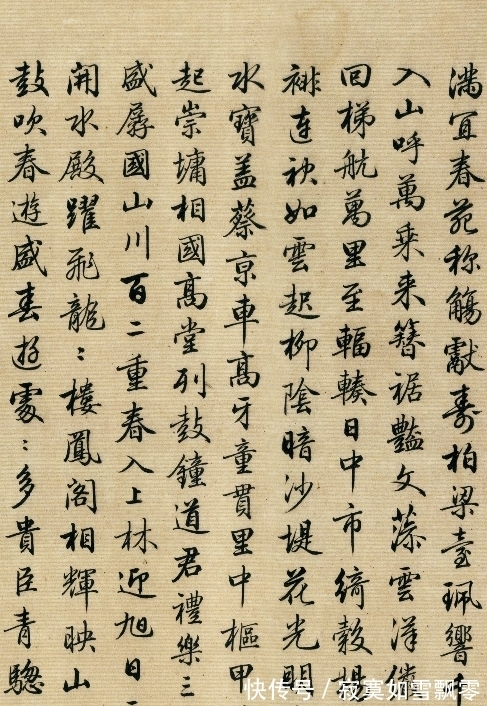 滿宜春苑称觴獻壽柏梁臺珮響
入山呼萬乗来簪裾豔文藻雲漢
回梯航萬里至輻輳日中市綺縠揚
裶連袂如雲起柳陰暗沙堤花光明
水寶盖蔡京車高牙童貫里中樞甲
起崇墉相國高堂列鼓鐘道君禮樂三
盛孱國山川百二重春入上林迎旭日
開水殿躍飛龍〻樓鳳閣相輝映山
鼓吹春遊盛春遊處〻多貴臣青驄
快传号／寂寞如雪飘零